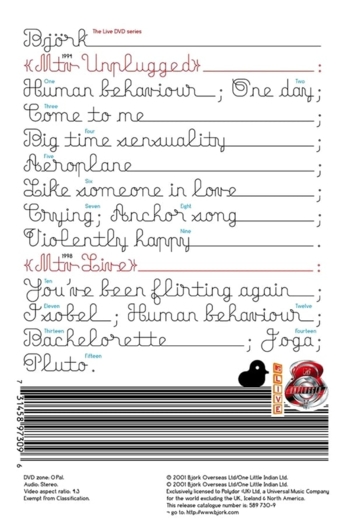 Björk The Live DVD series
1994
«Mtv Unplugged» :
One Two
Human behaviour ; One day ;
Three
Come to me ;
four
Big time sensuality ;
Five
Aeroplane ;
Six
Like someone in love ;
Seven Eight
Crying ; Anchor song ;
Nine
Violently happy .
1998
«Mtv Live» :
Ten
You've been flirting again ;
Eleven Twelve
Isobel ; Human behaviour ;
Thirteen fourteen
Bachelorette ; Joga ;
Fifteen
Pluto .
LIVE
7 31458 97309 6
DVD zone: 0 Pal.
Audio: Stereo.
Video aspect ratio: 4:3
Exempt from Classification.
© 2001 Bjork Overseas Ltd/One Little Indian Ltd.
℗ 2001 Bjork Overseas Ltd/One Little Indian Ltd.
Exclusively licensed to Polydor (UK) Ltd, a Universal Music Company
for the world excluding the UK, Iceland & North America.
This release catalogue number is: 589 730-9
¬ go to: http://www.bjork.com